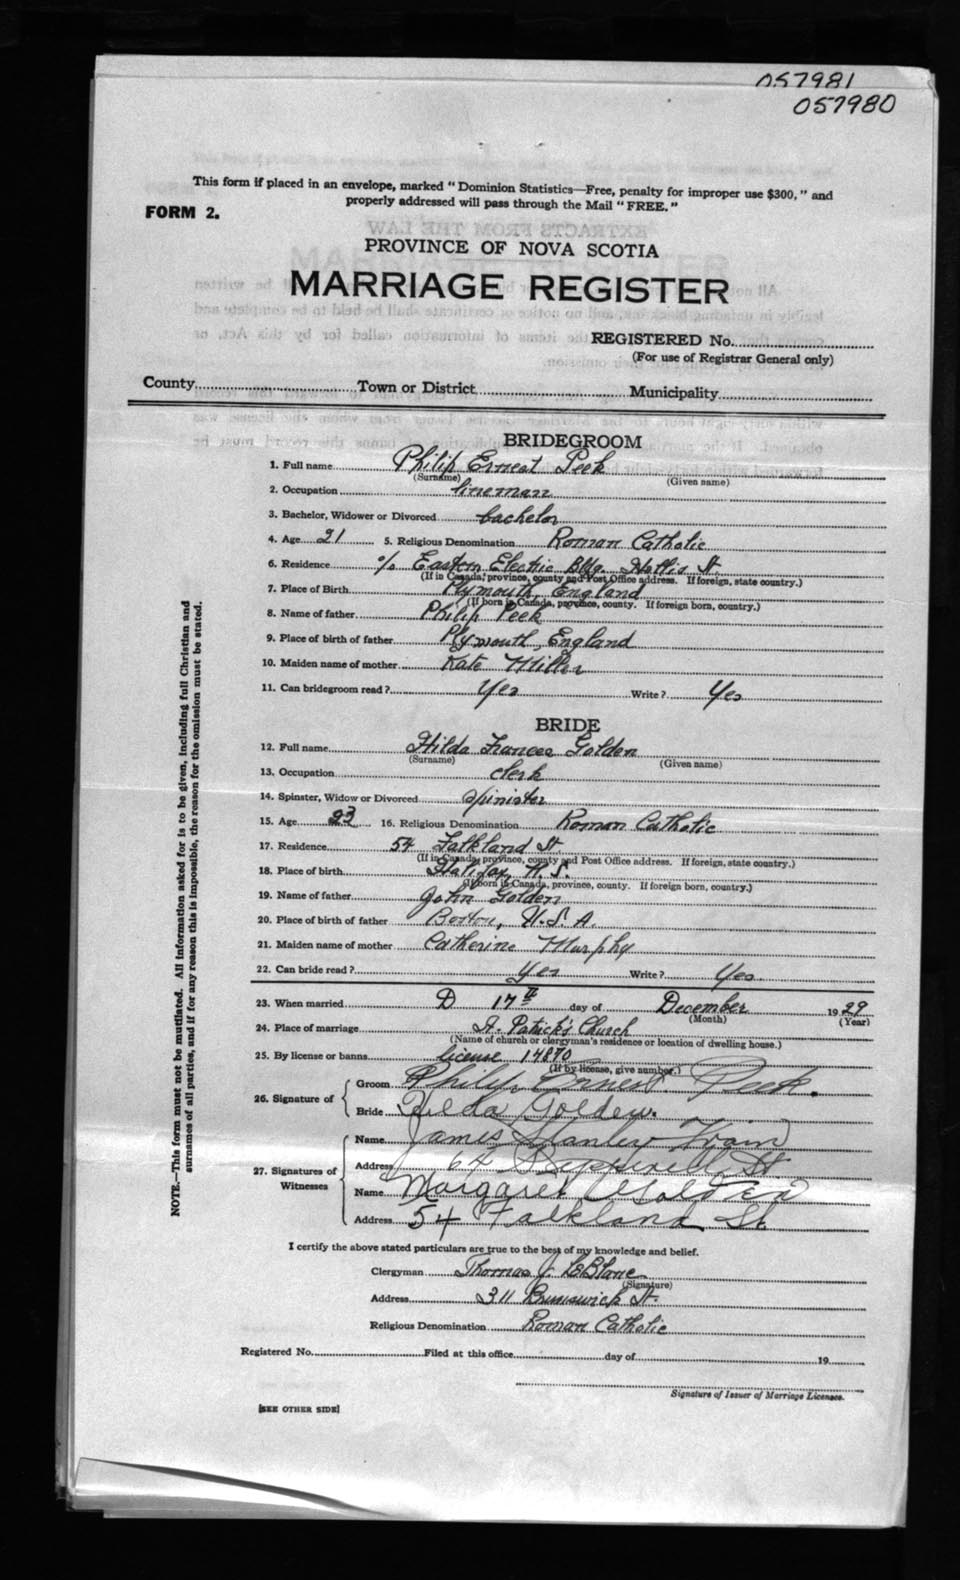 057981
057980
This form if placed in an envelope, marked "Dominion Statistics—Free, penalty for improper use $300," and
properly addressed will pass through the Mail "FREE."
FORM 2.
PROVINCE OF NOVA SCOTIA
MARRIAGE REGISTER
REGISTERED No.
(For use of Registrar General only)
County Town or District Municipality
BRIDEGROOM
1. Full name Philip Ernest Peek
(Surname) (Given name)
2. Occupation lineman
3. Bachelor, Widower or Divorced bachelor
4. Age 21 5. Religious Denomination Roman Catholic
6. Residence c/o Eastern Electric Bldg. Hollis St.
(If in Canada, province, county and Post Office address. If foreign, state country.)
7. Place of Birth Plymouth, England
(If born in Canada, province, county. If foreign born, country.)
8. Name of father Philip Peek
9. Place of birth of father Plymouth, England
10. Maiden name of mother Kate Miller
11. Can bridegroom read? Yes Write? Yes
BRIDE
12. Full name Hilda Frances Golden
(Surname) (Given name)
13. Occupation clerk
14. Spinster, Widow or Divorced spinister
15. Age 23 16. Religious Denomination Roman Catholic
17. Residence 54 Falkland St.
(If in Canada, province, county and Post Office address. If foreign, state country.)
18. Place of birth Halifax, N.S.
(If born in Canada, province, county. If foreign born, country.)
19. Name of father John Golden
20. Place of birth of father Boston, U.S.A.
21. Maiden name of mother Catherine Murphy
22. Can bride read? yes Write? Yes
23. When married 17th day of December 1929
(Month) (Year)
24. Place of marriage St. Patrick's Church
(Name of church or clergyman's residence or location of dwelling house.)
25. By license or banns license 14870
(If by license, give number.)
26. Signature of Groom Philip Ernest Peek.
Bride Hilda Golden.
27. Signatures of Witnesses
Name James Stanley
Address 64 St
Name Margaret Golden
Address 54 Falkland St.
I certify the above stated particulars are true to the best of my knowledge and belief.
Clergyman Thomas J. LeBlanc
(Signature)
Address 311 Brunswick St.
Religious Denomination Roman Catholic
Registered No. Filed at this office day of 19
Signature of Issuer of Marriage Licenses.
[SEE OTHER SIDE]
NOTE.—This form must not be mutilated. All information asked for is to be given, including full Christian and
surnames of all parties, and if for any reason this is impossible, the reason for the omission must be stated.